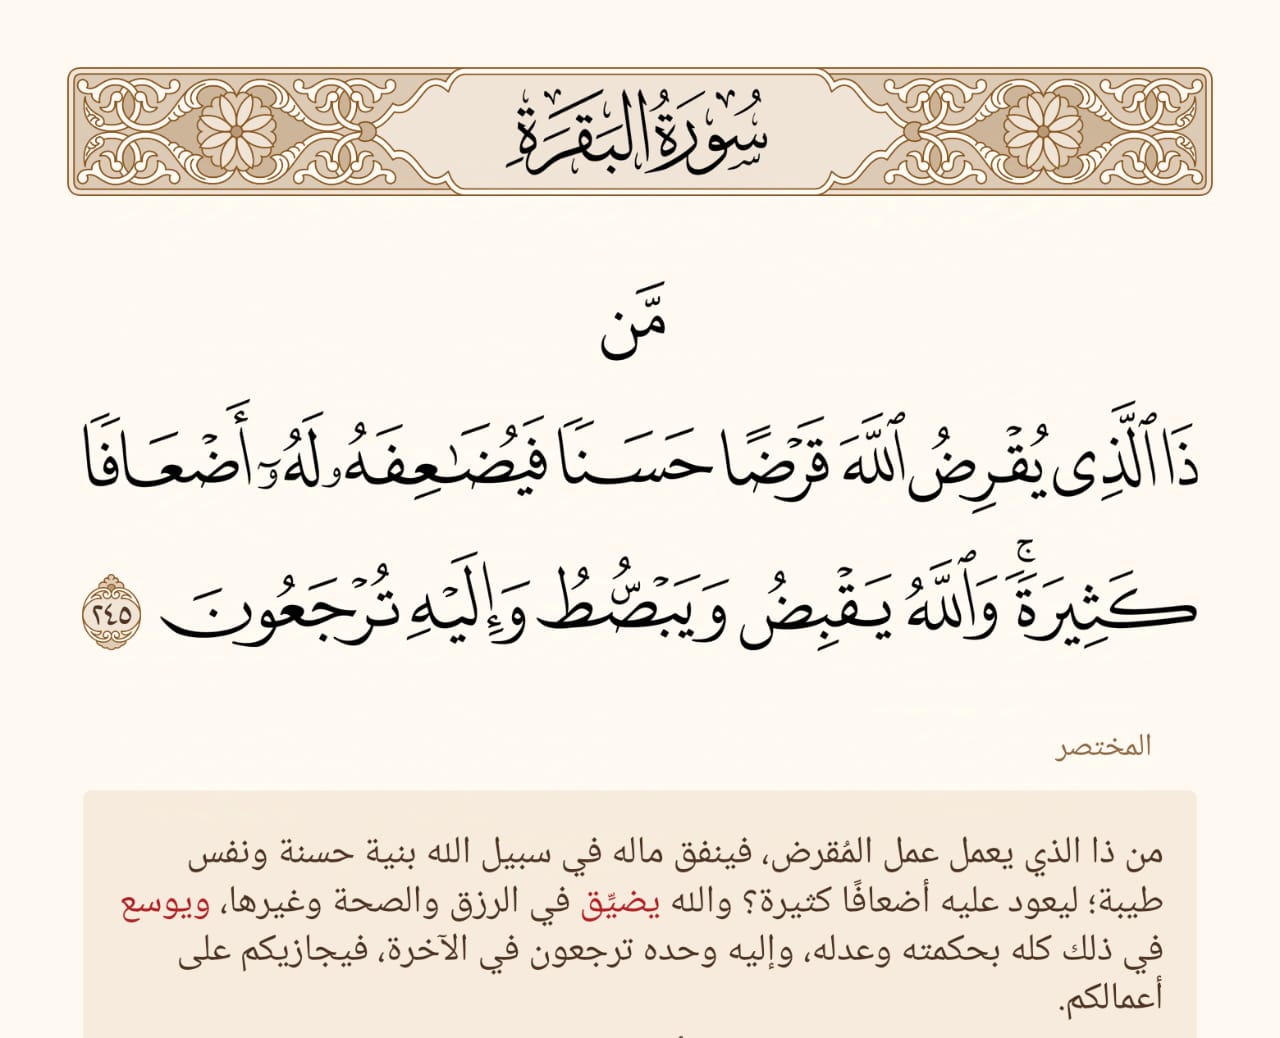 سُورَةُ البَقَرَةِ
مَّن
ذَا ٱلَّذِى يُقْرِضُ ٱللَّهَ قَرْضًا حَسَنًا فَيُضَـٰعِفَهُۥ لَهُۥٓ أَضْعَافًا
كَثِيرَةً ۚ وَٱللَّهُ يَقْبِضُ وَيَبْصُۜطُ وَإِلَيْهِ تُرْجَعُونَ ٢٤٥
المختصر
من ذا الذي يعمل عمل المُقرض، فينفق ماله في سبيل الله بنية حسنة ونفس
طيبة؛ ليعود عليه أضعافًا كثيرة؟ والله يضيِّق في الرزق والصحة وغيرها، ويوسع
في ذلك كله بحكمته وعدله، وإليه وحده ترجعون في الآخرة، فيجازيكم على
أعمالكم.